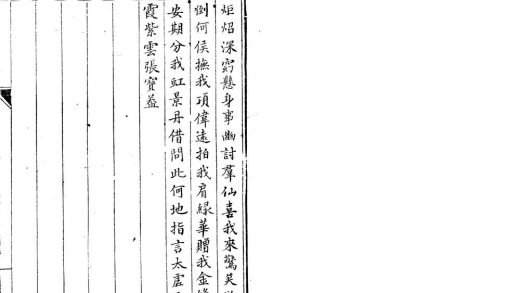 炬炤深窈懸身事幽討羣仙喜我來驚笑
倒何侯撫我項偉遠拍我肩綠華贈我金
安期分我虹景丹借問此何地指言太虛
霞紫雲張寶蓋